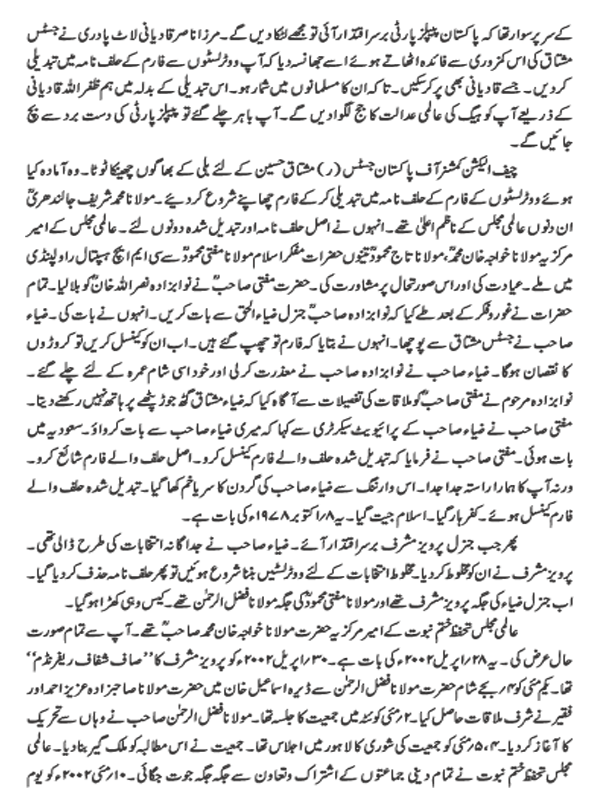 کے سر پر سوار تھا کہ پاکستان پیپلز پارٹی برسراقتدار آئی تو مجھے لٹکا دیں گے۔ مرزا ناصر قادیانی لاٹ پادری نے جسٹس
مشتاق کی اس کمزوری سے فائدہ اٹھاتے ہوئے اسے جھانسہ دیا کہ آپ ووٹر لسٹوں سے فارم کے حلف نامہ میں تبدیلی
کردیں۔ جسے قادیانی بھی پر کرسکیں۔ تاکہ ان کا مسلمانوں میں شمار ہو۔ اس تبدیلی کے بدلہ میں ہم ظفر اللہ قادیانی
کے ذریعے آپ کو ہیگ کی عالمی عدالت کا جج لگوادیں گے۔ آپ باہر چلے گئے تو پیپلز پارٹی کی دست برد سے بچ
جائیں گے۔
چیف الیکشن کمشنر آف پاکستان جسٹس (ر) مشتاق حسین کے لئے بلی کے بھاگوں چھینکا ٹوٹا۔ وہ آمادہ کیا
ہوئے ووٹر لسٹوں کے فارم کے حلف نامہ میں تبدیلی کرکے فارم چھاپنے شروع کردیئے۔ مولانا محمد شریف جالندھریؒ
ان دنوں عالمی مجلس کے ناظم اعلیٰ تھے۔ انہوں نے اصل حلف نامہ اور تبدیل شدہ دونوں لئے۔ عالمی مجلس کے امیر
مرکزیہ مولانا خواجہ خان محمدؒ، مولانا تاج محمودؒ تینوں حضرات مفکر اسلام مولانا مفتی محمودؒ سے سی ایم ایچ ہسپتال راولپنڈی
میں ملے۔ عیادت کی اور اس صورتحال پر مشاورت کی۔ حضرت مفتی صاحبؒ نے نوابزادہ نصر اللہ خانؒ کو بلالیا۔ تمام
حضرات نے غوروفکر کے بعد طے کیا کہ نوابزادہ صاحبؒ جنرل ضیاء الحق سے بات کریں۔ انہوں نے بات کی۔ ضیاء
صاحب نے جسٹس مشتاق سے پوچھا۔ انہوں نے بتایا کہ فارم تو چھپ گئے ہیں۔ اب ان کو کینسل کریں تو کروڑوں
کا نقصان ہوگا۔ ضیاء صاحب نے نوابزادہ صاحب سے معذرت کرلی اور خود اسی شام عمرہ کے لئے چلے گئے۔
نوابزادہ مرحوم نے مفتی صاحبؒ کو ملاقات کی تفصیلات سے آگاہ کیا کہ ضیاء مشتاق گٹھ جوڑ پٹھے پر ہاتھ نہیں رکھنے دیتا۔
مفتی صاحب نے ضیاء صاحب کے پرائیویٹ سیکرٹری سے کہا کہ میری ضیاء صاحب سے بات کرواؤ۔ سعودیہ میں
بات ہوئی۔ مفتی صاحب نے فرمایا کہ تبدیل شدہ حلف والے فارم کینسل کرو۔ اصل حلف والے فارم شائع کرو۔
ورنہ آپ کا ہمارا راستہ جدا جدا۔ اس وارننگ سے ضیاء صاحب کی گردن کا سریا خم کھا گیا۔ تبدیل شدہ حلف والے
فارم کینسل ہوئے۔ کفر ہار گیا۔ اسلام جیت گیا۔ یہ ۱۸؍اکتوبر ۱۹۷۸ء کی بات ہے۔
پھر جب جنرل پرویز مشرف برسراقتدار آئے۔ ضیاء صاحب نے جداگانہ انتخابات کی طرح ڈالی تھی۔
پرویز مشرف نے ان کو مخلوط کردیا۔ مخلوط انتخابات کے لئے ووٹر لسٹیں بننا شروع ہوئیں تو پھر حلف نامہ حذف کردیا گیا۔
اب جنرل ضیاء کی جگہ پرویز مشرف تھے اور مولانا مفتی محمودؒ کی جگہ مولانا فضل الرحمٰن تھے۔ کیس وہی کھڑا ہوگیا۔
عالمی مجلس تحفظ ختم نبوت کے امیر مرکزیہ حضرت مولانا خواجہ خان محمد صاحبؒ تھے۔ آپ سے تمام صورت
حال عرض کی۔ یہ ۲۸؍اپریل ۲۰۰۲ء کی بات ہے۔ ۳۰؍اپریل ۲۰۰۲ء کو پرویز مشرف کا ’’صاف شفاف ریفرنڈم‘‘
تھا۔ یکم مئی کو ۴ بجے شام حضرت مولانا فضل الرحمٰن سے ڈیرہ اسماعیل خان میں حضرت مولانا صاحبزادہ عزیز احمد اور
فقیر نے شرف ملاقات حاصل کیا۔ ۲؍مئی کو کوئٹہ میں جمعیت کا جلسہ تھا۔ مولانا فضل الرحمٰن صاحب نے وہاں سے تحریک
کا آغاز کردیا۔ ۴، ۵؍مئی کو جمعیت کی شوریٰ کا لاہور میں اجلاس تھا۔ جمعیت نے اس مطالبہ کو ملک گیر بنا دیا۔ عالمی
مجلس تحفظ ختم نبوت نے تمام دینی جماعتوں کے اشتراک وتعاون سے جگہ جگہ جوت جگائی۔ ۱۰؍مئی ۲۰۰۲ء کو یوم